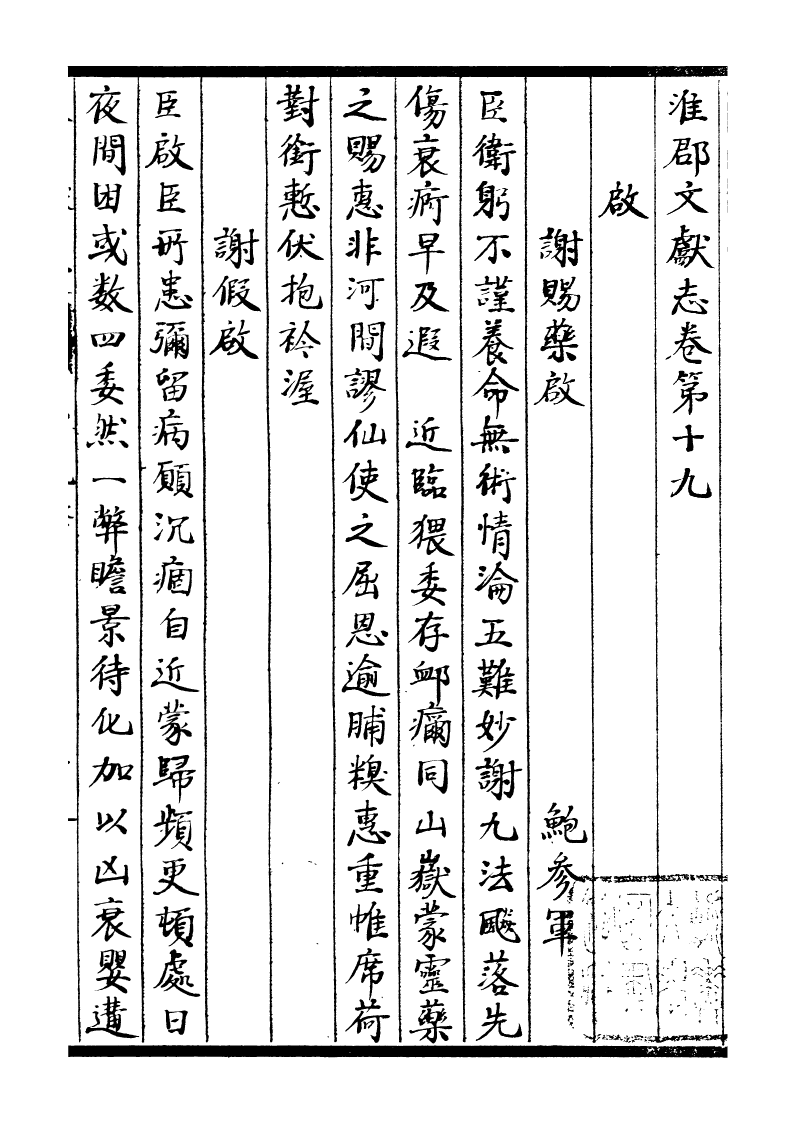 淮郡文獻志卷第十九
啟
謝賜藥啟 鮑參軍
臣衛躬不謹養命無術情淪五難妙謝九法飈落先
傷衰痾早及遐 近臨猥委存䘏痾同山嶽蒙靈藥
之賜惠非河間謬仙使之屈恩逾脯糗惠重帷席荷
對銜慙伏抱衿渥
謝假啟
臣啟臣所患彌留病願沉痼自近蒙歸頻更頓處日
夜間困或数四委然一弊瞻景待化加以凶衰嬰遘